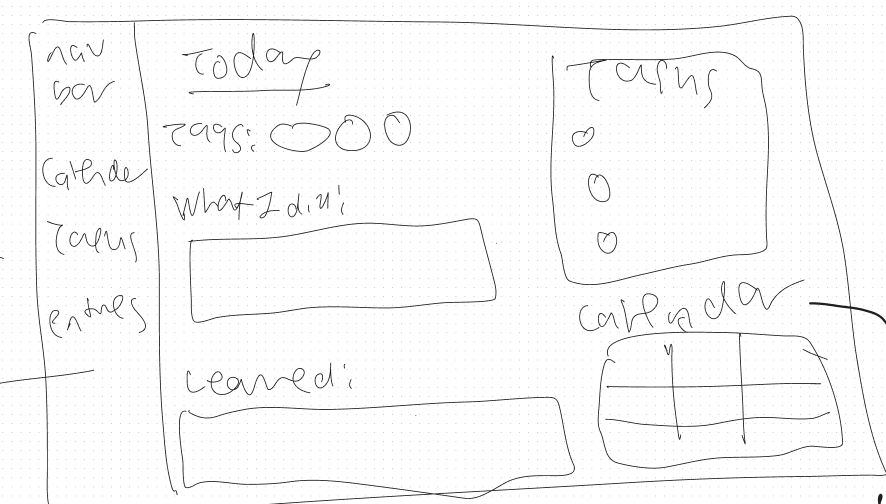 nav
bar
Calender
Tasks
entries
Today
Tags:
What I did:
Learned:
Tasks
Calendar